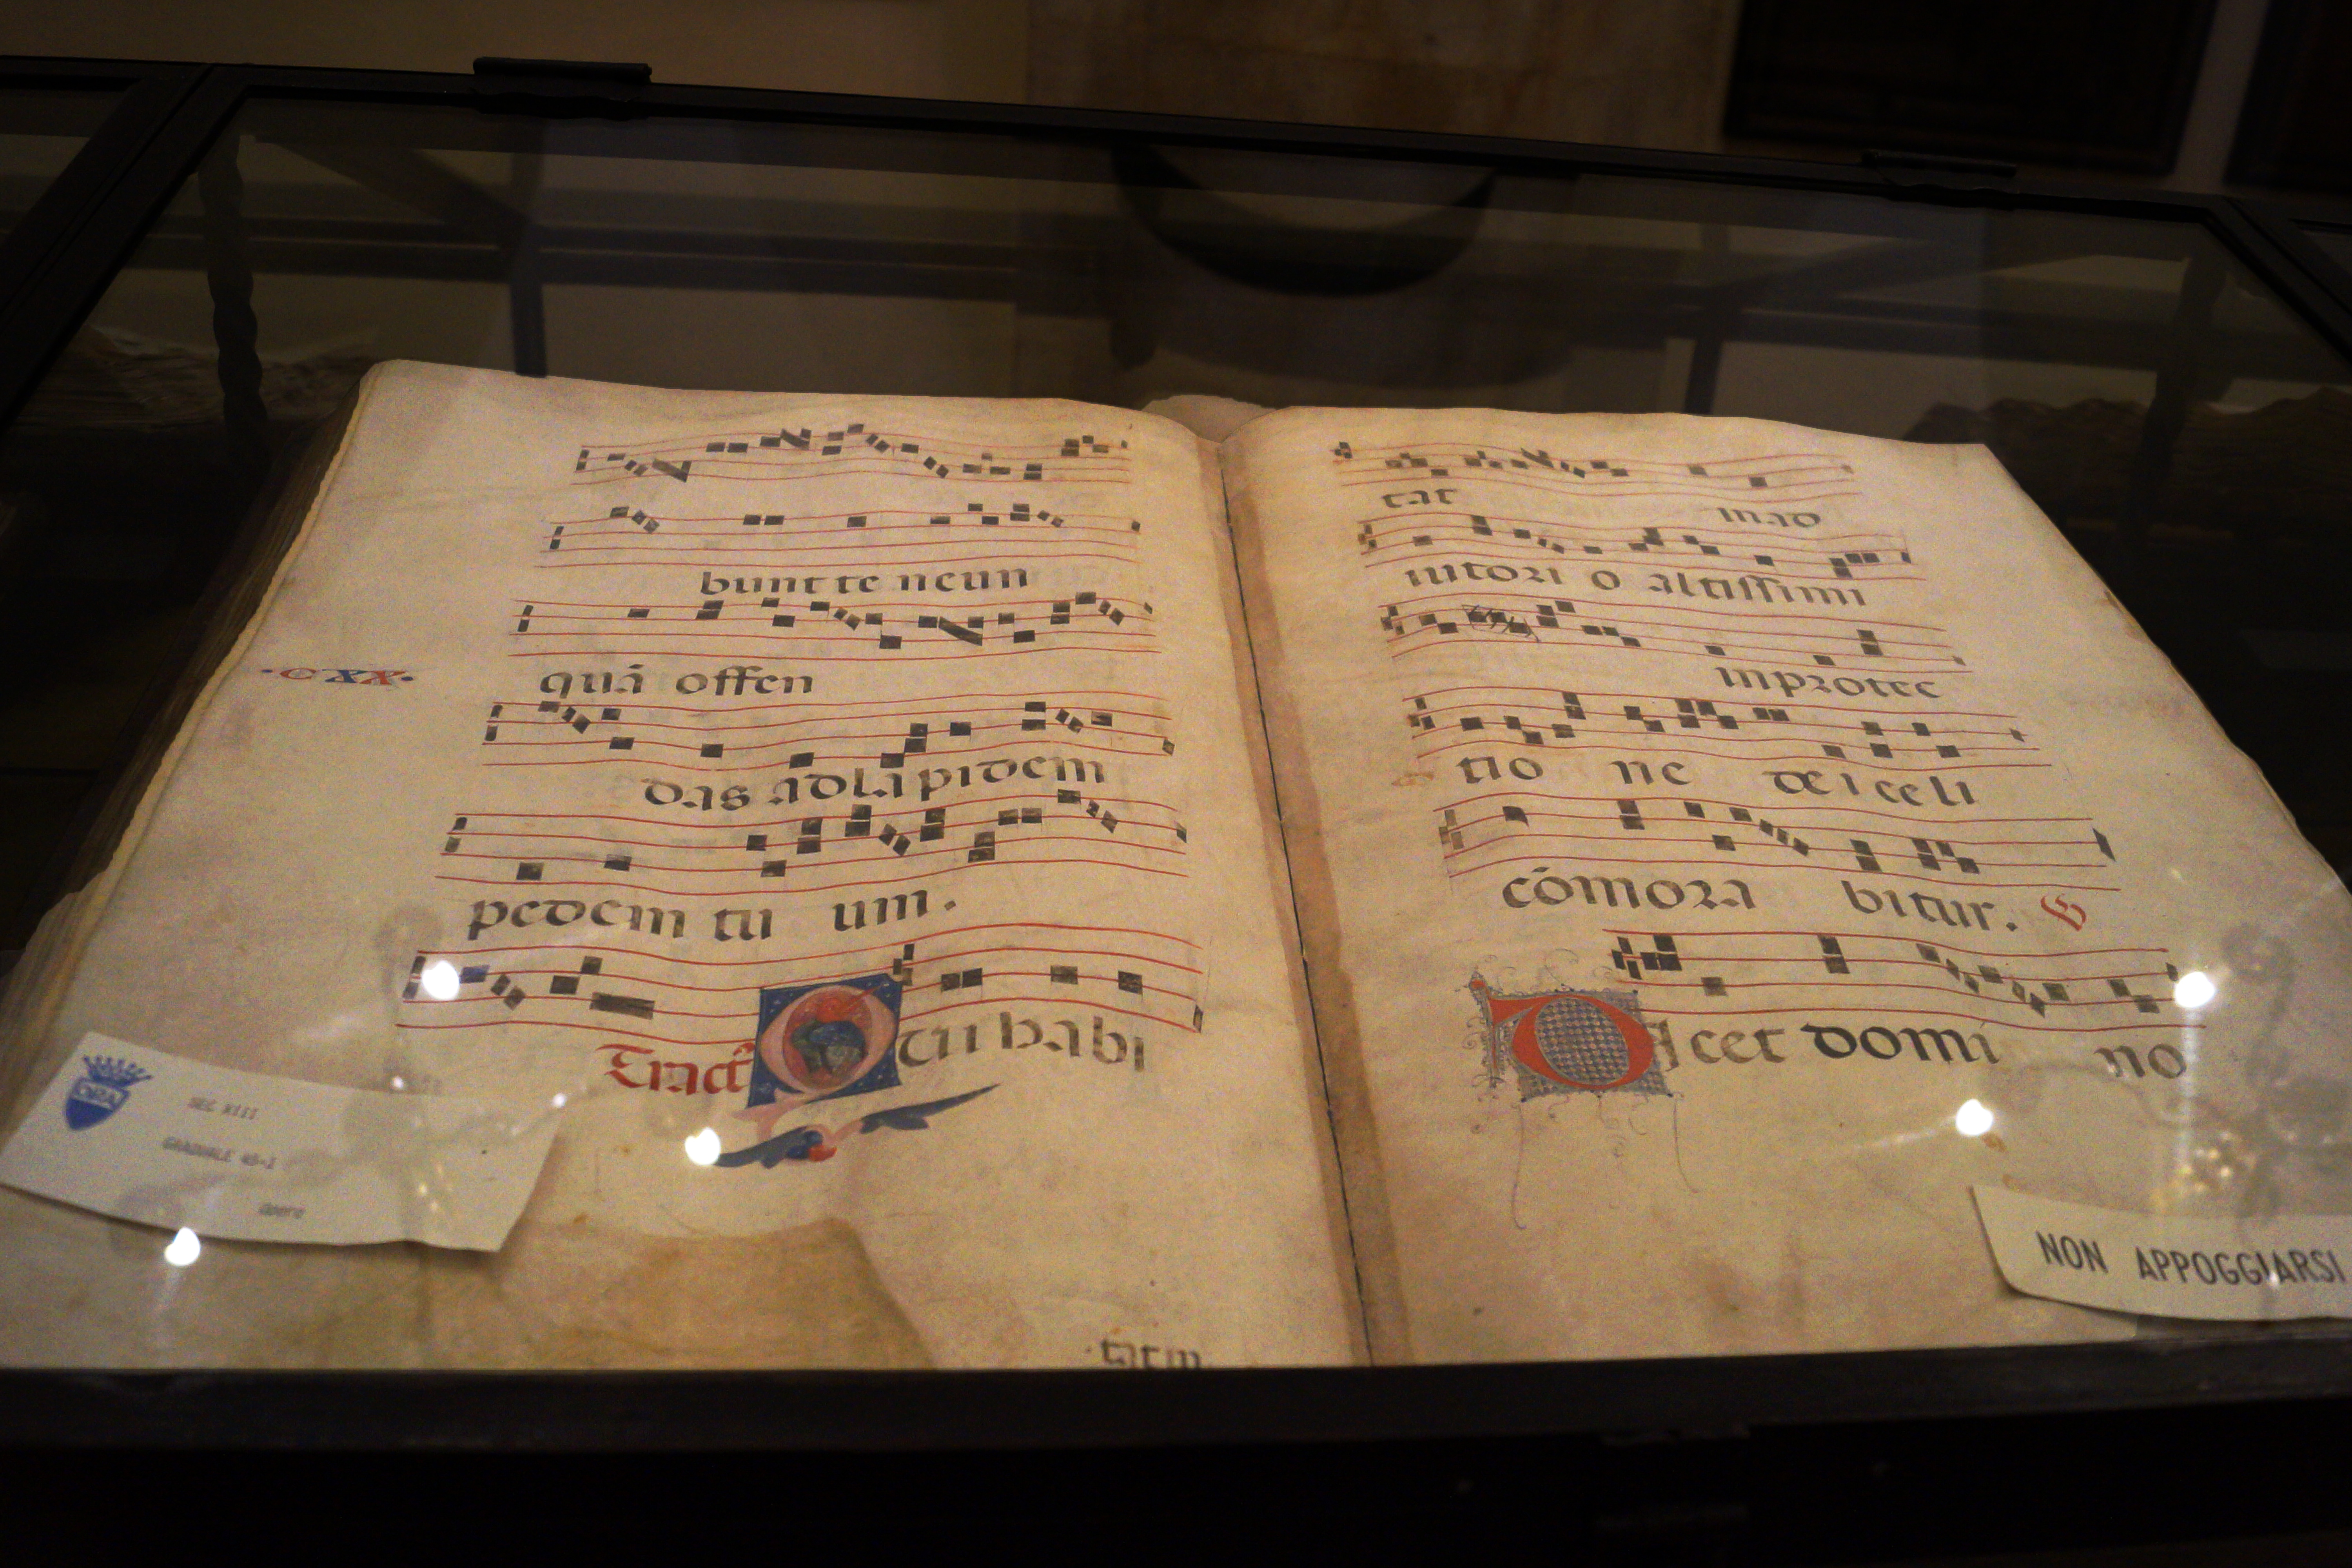 bunt te neun
·CXX·
quā offen
das ad lapidem
pedem tu um.
Tract Qui habi
tat in ad
iutori o altissimi
in protec
tio ne dei celi
cōmora bitur. V
Dicet domi no
OPA
SEC XIII
GRADUALE 45-I
Opere
NON APPOGGIARSI